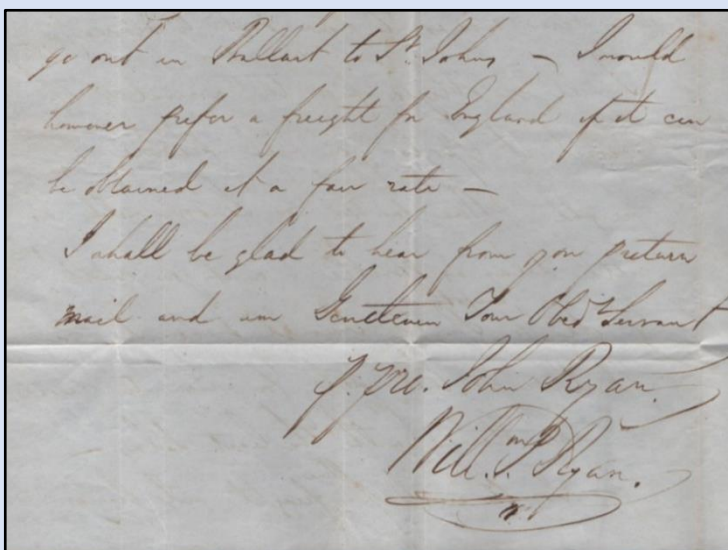 go out in Ballast to St. Johns — I would
however prefer a freight for England if it can
be obtained at a fair rate —
I shall be glad to hear from you p return
mail and am Gentlemen Your Obedt Servant
p. pro. John Ryan.
Willm. P Ryan.